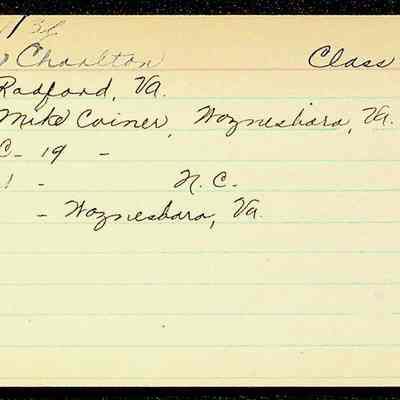 Charlton Class
Radford, Va.
Mike Coiner, Waynesboro, Va.
C- 19 -
1 - N.C.
- Waynesboro, Va.